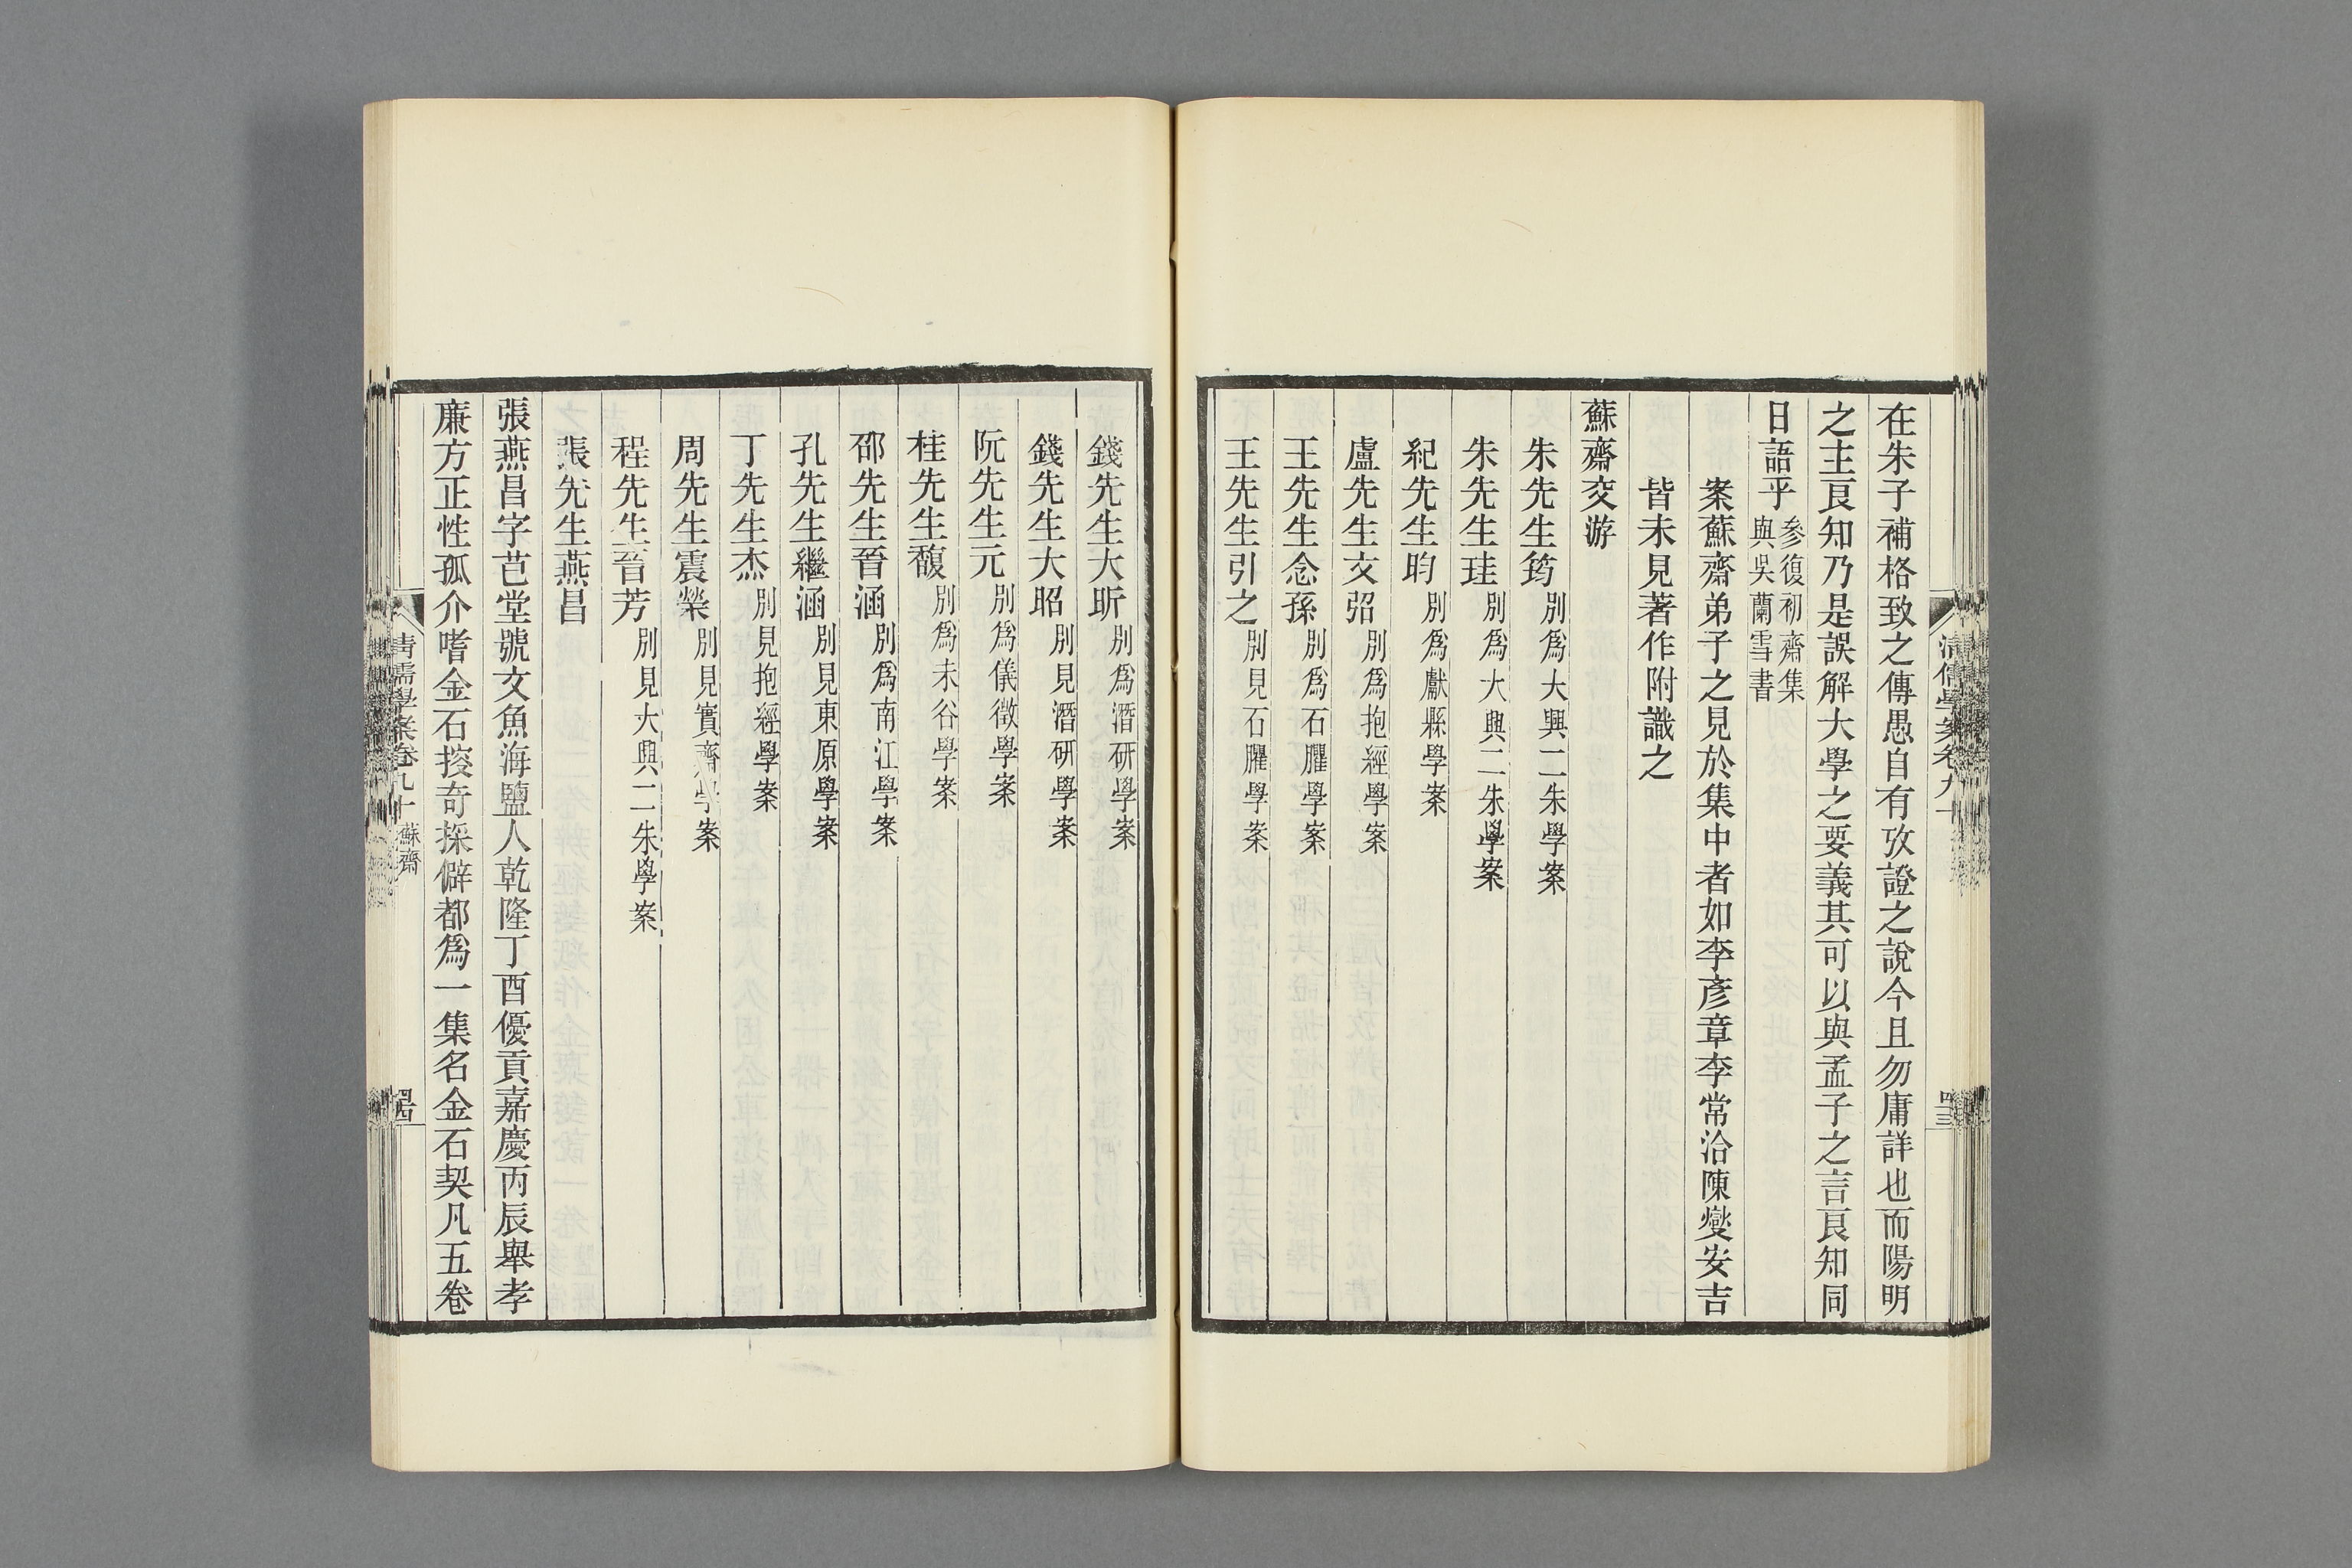 在朱子補格致之傳愚自有攷證之說今且勿庸詳也而陽明
之主良知乃是誤解大學之要義其可以與孟子之言良知同
日語乎參復初齋集與吳蘭雪書
案蘇齋弟子之見於集中者如李彥章李常洽陳燮安吉
皆未見著作附識之
蘇齋交游
朱先生筠別爲大興二朱學案
朱先生珪別爲大興二朱學案
紀先生昀別爲獻縣學案
盧先生文弨別爲抱經學案
王先生念孫別爲石臞學案
王先生引之別見石臞學案
清儒學案卷九十
四三
錢先生大昕別爲潛研學案
錢先生大昭別見潛研學案
阮先生元別爲儀徵學案
桂先生馥別爲未谷學案
邵先生晉涵別爲南江學案
孔先生繼涵別見東原學案
丁先生杰別見抱經學案
周先生震榮別見實齋學案
程先生晉芳別見大興二朱學案
張先生燕昌
張燕昌字芑堂號文魚海鹽人乾隆丁酉優貢嘉慶丙辰舉孝
廉方正性孤介嗜金石搜奇採僻都爲一集名金石契凡五卷
清儒學案卷九十 蘇齋
四四